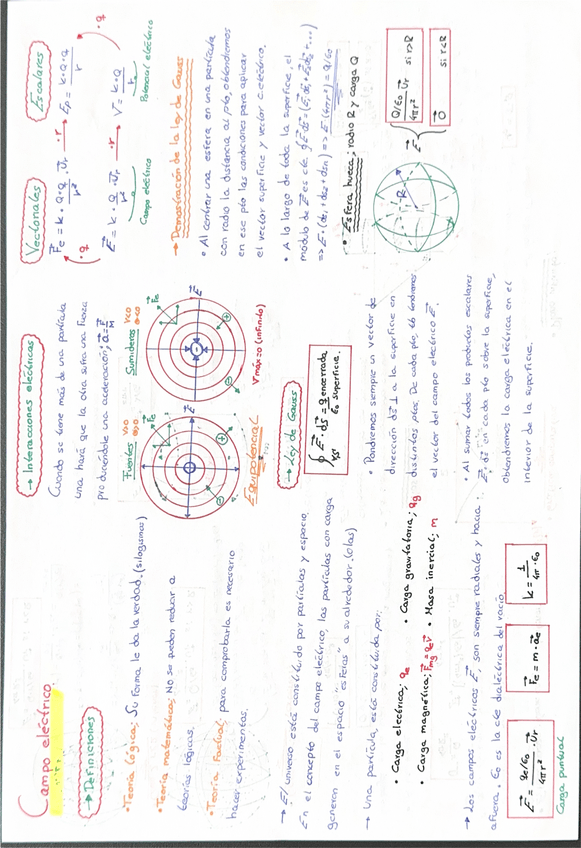 Campo eléctrico.
→ Definiciones
• Teoría lógica; Su forma le da la verdad. (silogismos)
• Teoría matemática; No se pueden reducir a
teorías lógicas.
• Teoría Factual; para comprobarla es necesario
hacer experimentos.
→ El universo está constituido por partículas y espacio.
En el concepto del campo eléctrico, las partículas con carga
generan en el espacio "esferas" a su alrededor. (olas)
→ Una partícula, está constituida por:
• Carga eléctrica; qe
• Carga gravitatoria; qg
• Carga magnética; Fmg = qe v
• Masa inercial; m
→ Los campos eléctricos E, son siempre radiales y hacia
afuera. ε0 es la cte dialéctrica del vacío.
E = qe/ε0 / 4πr² · Ur
Fe = m · ae
k = 1 / 4π · ε0
Carga puntual
→ Interacciones eléctricas
Cuando se tiene más de una partícula
una hará que la otra sufra una fuerza
produciéndole una aceleración; a = F/M
Fuentes
Sumideros
Fe
E
Equipotencial
Vmáx = 0 (infinito)
→ Ley de Gauss
∮ E · ds = q encerrada / ε0 superficie.
• Pondremos siempre un vector de
dirección ds ⊥ a la superficie en
distintos ptos. De cada pto obtendremos
el vector del campo eléctrico E.
• Al sumar todos los productos escalares
E · ds en cada pto sobre la superficie,
obtendremos la carga eléctrica en el
interior de la superficie.
Vectoriales
Escalares
Fe = k · Q · q / r² · Ur
Ep = k · Q · q / r
E = k · Q / r² · Ur
V = k · Q / r
Campo eléctrico
Potencial eléctrico
→ Demostración de la ley de Gauss
• Al centrar una esfera en una partícula
con radio la distancia al pto, obtendremos
en ese pto las condiciones para aplicar
el vector superficie y vector c.eléctrico.
• A lo largo de toda la superficie, el
módulo de E es cte. ∮ E · ds = (E1 ds1 + E2 ds2 + ...)
=> E · (ds1 + ds2 + dsn) => E (4πr²) = Q/ε0
• Esfera hueca; radio R y carga Q
R
E
Q/ε0 / 4πr² · Ur si r>R
0 si r<R